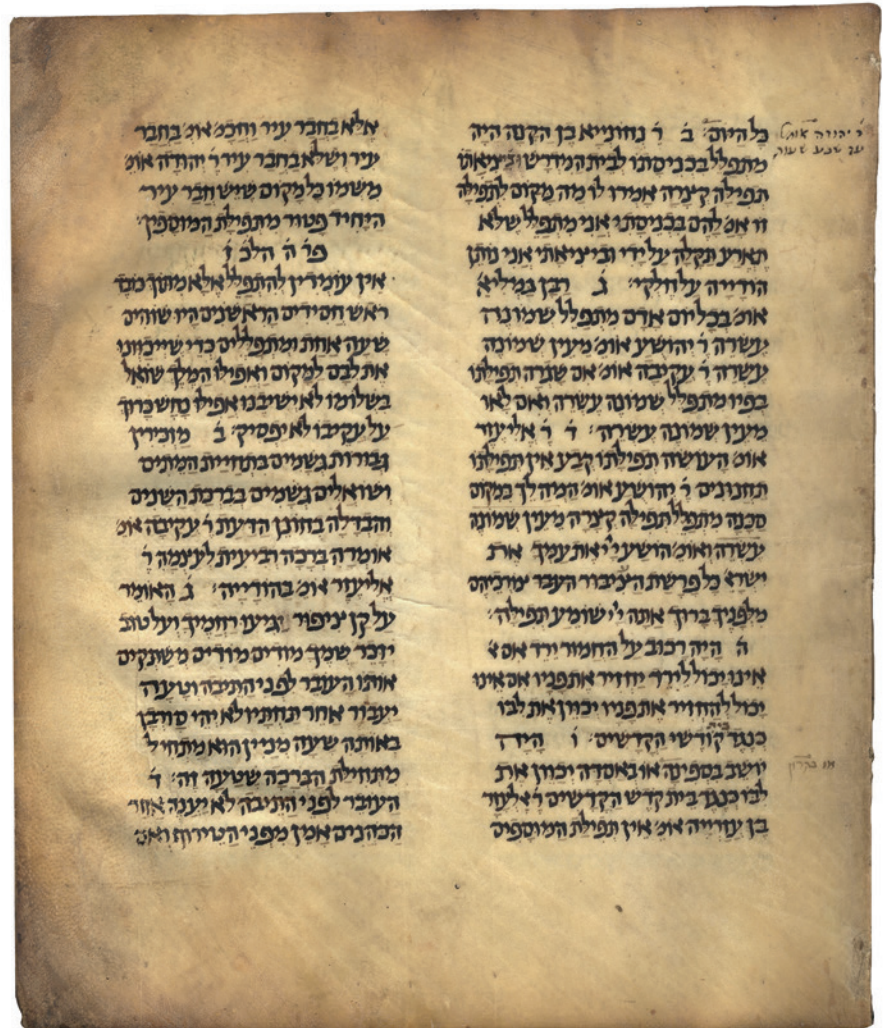 כל היום׳ ב ר׳ נחונייא בן הקנה היה
מתפלל בכניסתו לבית המדרש וביציאתו
תפילה קצרה אמרו לו מה מקום לתפילה
זו אמ׳ להם בכניסתי אני מתפלל שלא
תארע תקלה על ידי וביציאתי אני נותן
הודייה על חלקי׳ ג רבן גמליא׳
אומ׳ בכל יום אדם מתפלל שמונה
עשרה ר׳ יהושע אומ׳ מעין שמונה
עשרה ר׳ עקיבה אומ׳ אם שגרה תפילתו
בפיו מתפלל שמונה עשרה ואם לאו
מעין שמונה עשרה׳ ד ר׳ אליעזר
אומ׳ העושה תפילתו קבע אין תפילתו
תחנונים ר׳ יהושע אומ׳ המהלך במקום
סכנה מתפלל תפילה קצרה מעין שמונה
עשרה ואומ׳ הושע ייי את עמך את
ישרא׳ כל פרשת הציבור העבר צורכיהם
מלפניך ברוך אתה ייי שומע תפילה׳
ה היה רכוב על החמור ירד אם
אינו יכול לירד יחזיר את פניו אם אינו
יכול להחזיר את פניו יכוון את לבו
כנגד בית קודשי הקדשים׳ ו היה
יושב בספינה או באסדה יכוון את
לבו כנגד בית קדש הקדשים ר׳ אלעזר
בן עזרייה אומ׳ אין תפילת המוספים
ר׳ יהודה אומ׳
עד שבע שעות
אלא בחבר עיר וחכמ׳ אומ׳ בחבר
עיר ושלא בחבר עיר ר׳ יהודה אומ׳
משמו כל מקום שיש חבר עיר
היחיד פטור מתפילת המוספין׳
פר׳ ה הלכ׳ ו
אין עומדין להתפלל אלא מתוך כובד
ראש חסידים הראשונים היו שוהים
שעה אחת ומתפללים כדי שייכוונו
את לבם למקום ואפילו המלך שואל
בשלומו לא ישיבנו אפילו נחש כרוך
על עקיבו לא יפסיק׳ ב מזכירין
גבורות גשמים בתחיית המתים
ושואלים גשמים בברכת השנים
והבדלה בחונן הדעת ר׳ עקיבה אומ׳
אומרה ברכה רביעית לעצמה ר׳
אליעזר אומ׳ בהודייה׳ ג האומר
על קן ציפור יגיעו רחמיך ועל טוב
יזכר שמך מודים מודים משתקים
אותו העובר לפני התיבה וטעה
יעבור אחר תחתיו ולא יהי סורבן
באותה שעה מניין הוא מתחיל
מתחילת הברכה שטעה זה׳ ד
העובר לפני התיבה לא יענה אחר
הכהנים אמן מפני הטירוף ואם